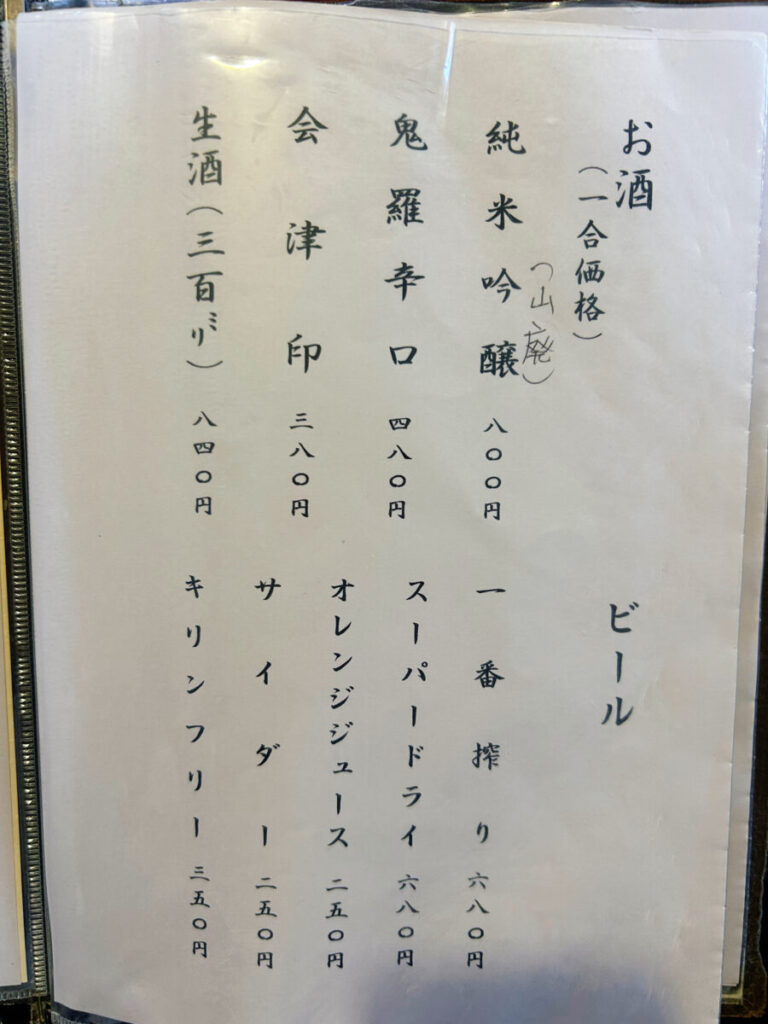 お酒
(一合価格)
純米吟醸 八〇〇円
(山廃)
鬼羅辛口 四八〇円
会津印 三八〇円
生酒(三百㍉) 八四〇円
ビール
一番搾り 六八〇円
スーパードライ 六八〇円
オレンジジュース 二五〇円
サイダー 二五〇円
キリンフリー 三五〇円